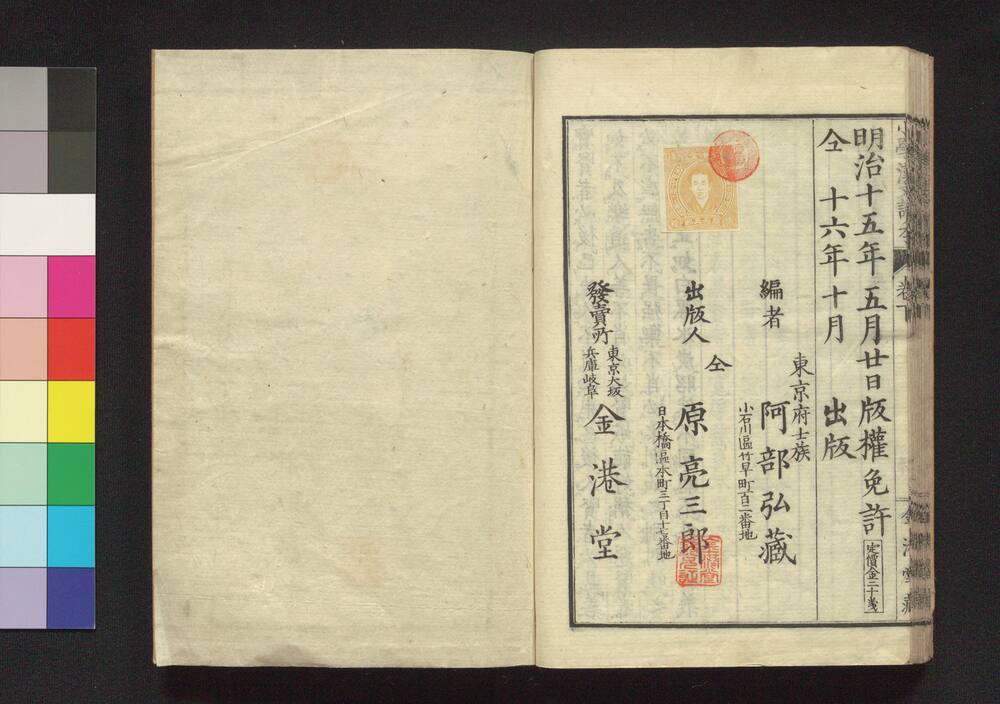 明治十五年五月廿日版權免許
定價金二十幾
仝十六年十月出版
東京府士族
編者 阿部弘藏
小石川區竹早町百二番地
仝
出版人 原亮三郎
日本橋區本町三丁目十七番地
東京大坂
發賣所 金港堂
兵庫岐阜